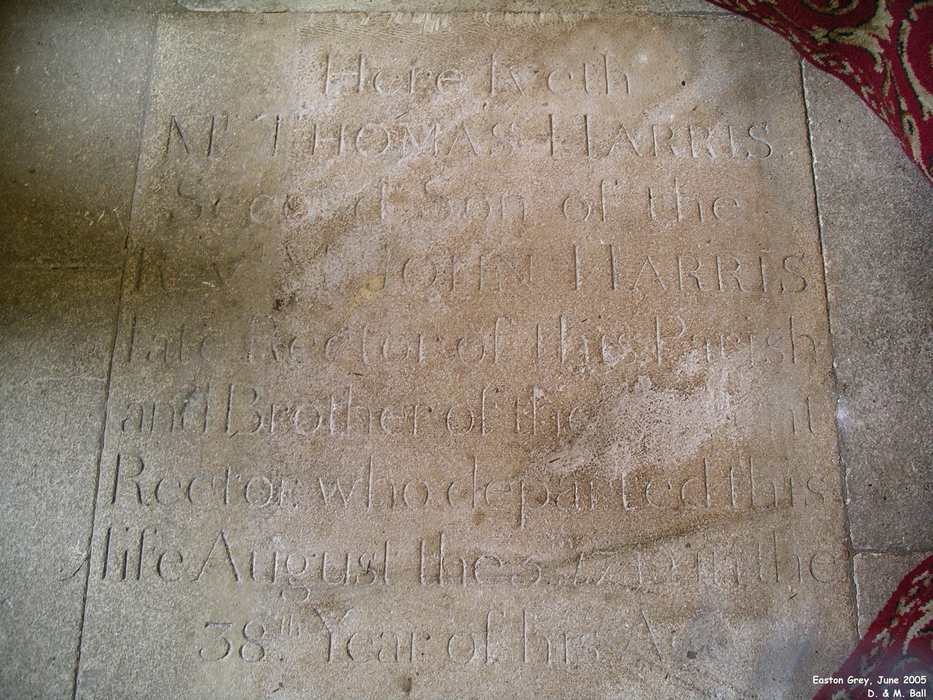 Here lyeth
Mr THOMAS HARRIS
Second Son of the
Revd Mr JOHN HARRIS
late Rector of this Parish
and Brother of the
Rector who departed this
life August the in the
38th Year of his
Easton Grey, June 2005
D. & M. Ball